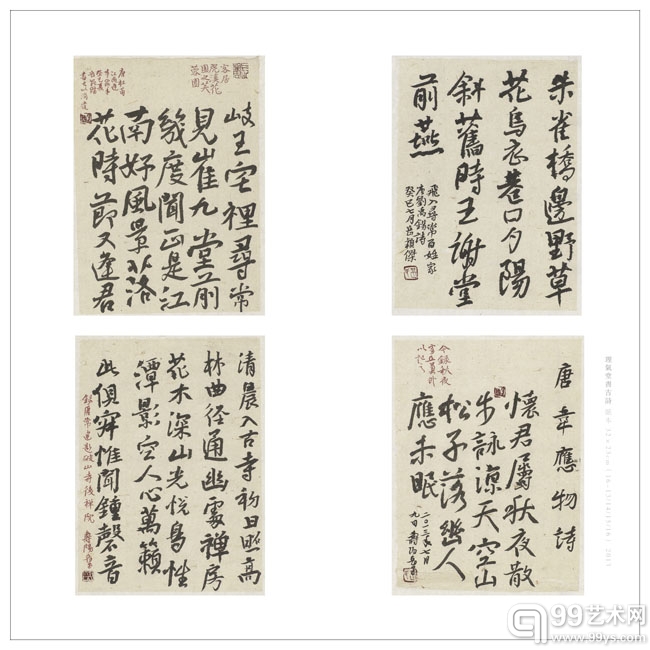 岐王宅裡尋常
見崔九堂前
幾度聞正是江
南好風景 落
花時節又逢君
唐杜甫
江南逢
李龜年
朱雀橋邊野草
花烏衣巷口夕陽
斜舊時王謝堂
前燕
飛入尋常百姓家
唐劉禹錫詩
癸巳七月
清晨入古寺初日照高
林曲径通幽處禅房
花木深山光悦鳥性
潭影空人心萬籟
此俱寂惟聞鐘磬音
錄唐常建題破山寺後禅院
唐韋應物詩
懷君屬秋夜散
步詠涼天空山
松子落幽人
應未眠
今錄秋夜
寄丘員外
以記之
二〇一三年七月
九日
書古詩 紙本 2013
99艺术网
www.99ys.com